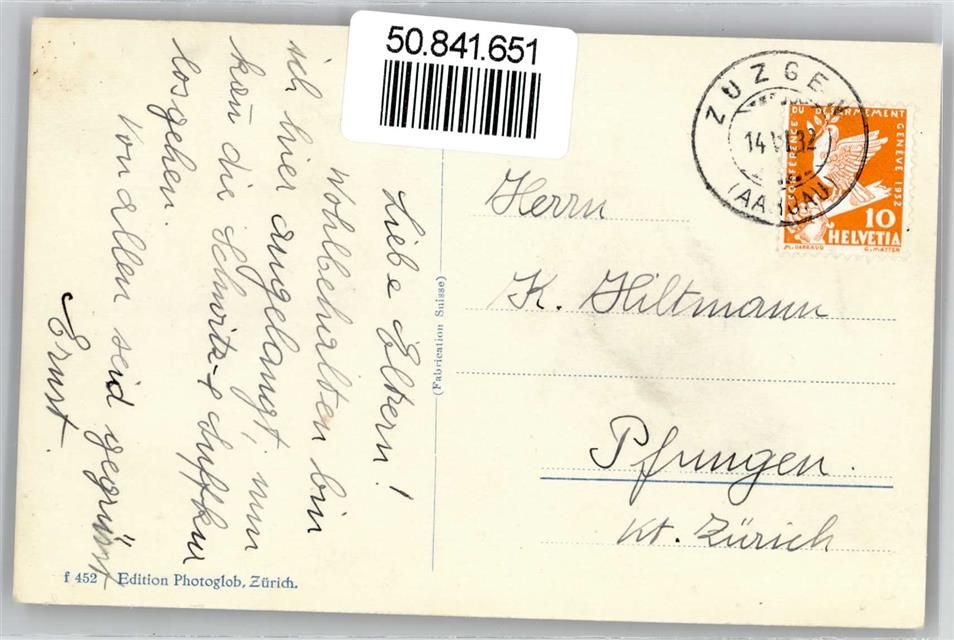 50.841.651
Liebe Eltern!
Wohlbehalten bin
ich hier angelangt, nun
kan̄ die Schwitz- &
losgehen.
Von allen seid gegrüsst
Ernst.
ZUZGEN
14 VI 32
(AARGAU)
CONFÉRENCE DU DÉSARMEMENT GENÈVE 1932
10
HELVETIA
Herrn
K. Hiltmann
Pfungen.
Kt. Zürich
(Fabrication Suisse)
f 452 Edition Photoglob, Zürich.